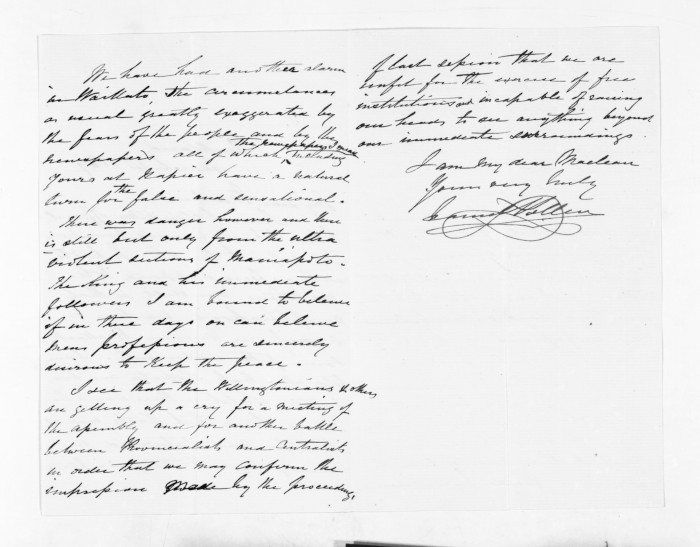 We have had another alarm
in Waikato, the circumstances
as usual greatly exaggerated by
the fears of the people and by the
newspapers all of which, the newspapers I mean including
yours at Napier have a natural
turn for the false and sensational.
There was danger however and there
is still but only from the ultra
violent sections of Maniapoto.
The King and his immediate
followers I am bound to believe
if in these days one can believe
mens professions are sincerely
desirous to keep the peace.
I see that the Wellingtonians & others
are getting up a cry for a meeting of
the assembly and for another battle
between Provincialists and Centralists
in order that we may confirm the
impression made by the proceedings
of last session that we are
unfit for the exercise of free
institutions and incapable of raising
our heads to see anything beyond
our immediate surroundings.
I am my dear Maclean
Yours very truly
Daniel Pollen